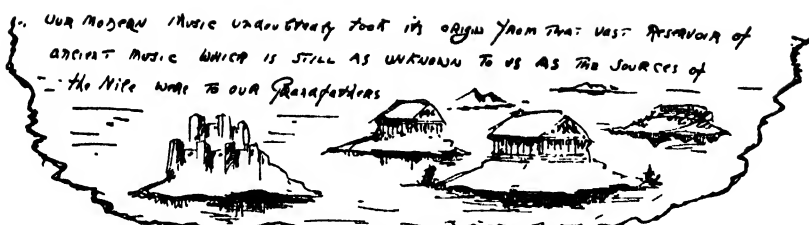 Our Modern Music undoubtedly took its origin from that vast Reservoir of
ancient Music which is still as unknown to us as the sources of
the Nile were to our Grandfathers